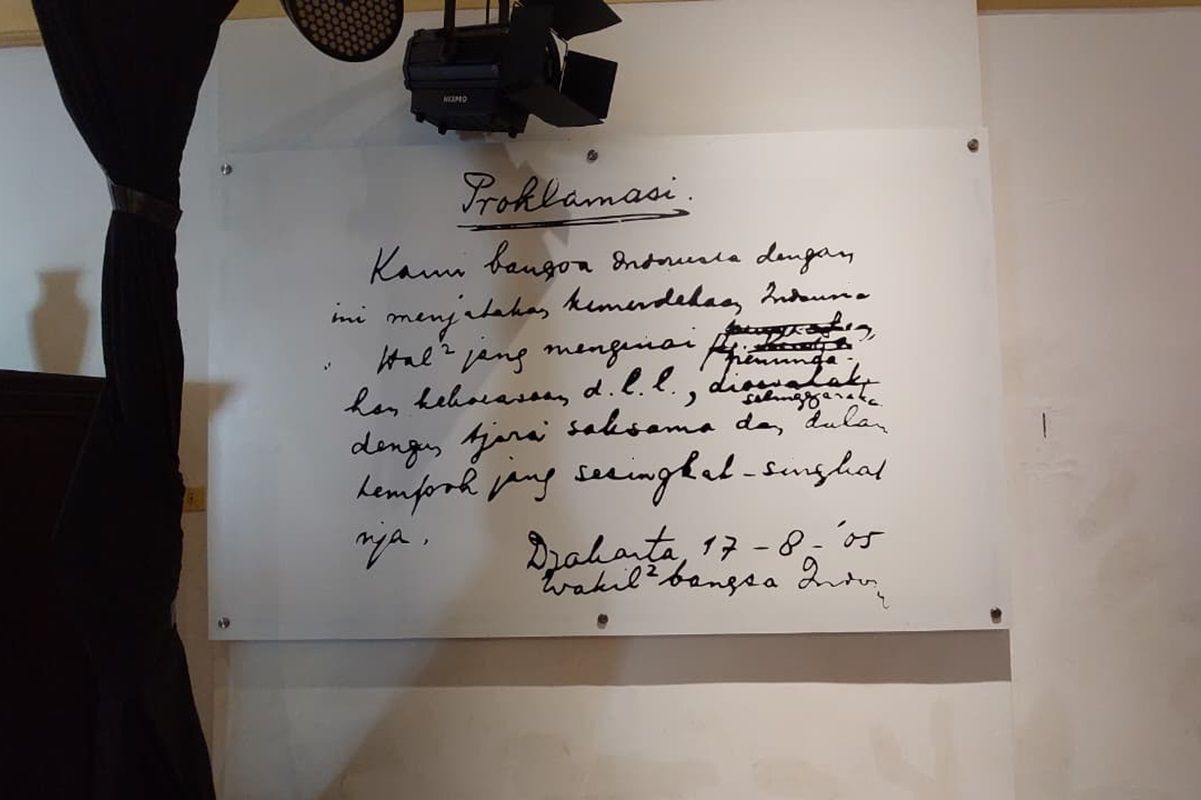 NEXPRO
Proklamasi.
Kami bangsa Indonesia dengan
ini menjatakan kemerdekaan Indonesia
Hal² jang mengenai
peminda-
han kekoeasaan d.l.l., diselenggarakan
dengan tjara saksama dan dalam
tempoh jang sesingkat-singkat
nja.
Djakarta 17-8-'05
Wakil² bangsa Indon